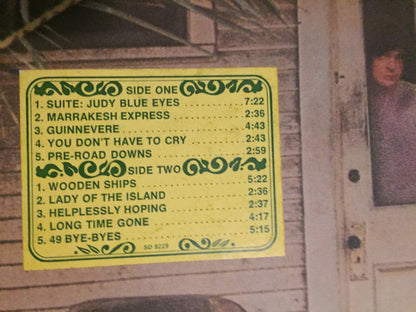 SIDE ONE
1. SUITE: JUDY BLUE EYES ........ 7:22
2. MARRAKESH EXPRESS ........ 2:36
3. GUINNEVERE ........ 4:43
4. YOU DON'T HAVE TO CRY ........ 2:43
5. PRE-ROAD DOWNS ........ 2:59
SIDE TWO
1. WOODEN SHIPS ........ 5:22
2. LADY OF THE ISLAND ........ 2:36
3. HELPLESSLY HOPING ........ 2:37
4. LONG TIME GONE ........ 4:17
5. 49 BYE-BYES ........ 5:15
SD 8229